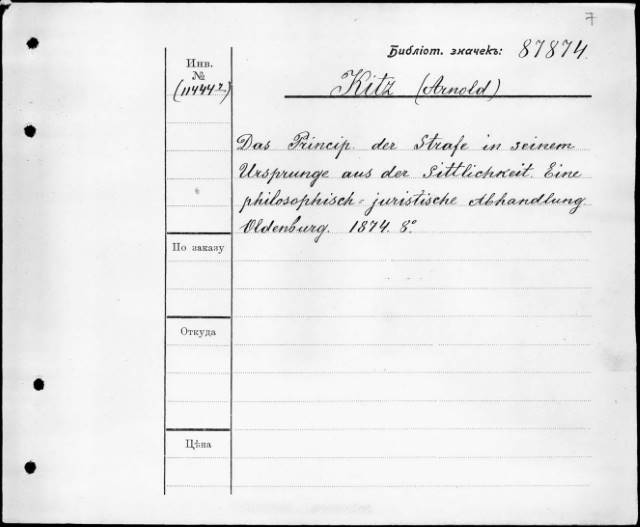 7
Библіот. значекъ: 87874.
Инв.
№
(11444²)
Kitz (Arnold)
Das Princip der Strafe in seinem
Ursprunge aus der Sittlichkeit. Eine
philosophisch-juristische Abhandlung.
Oldenburg. 1874. 8°
По заказу
Откуда
Цѣна